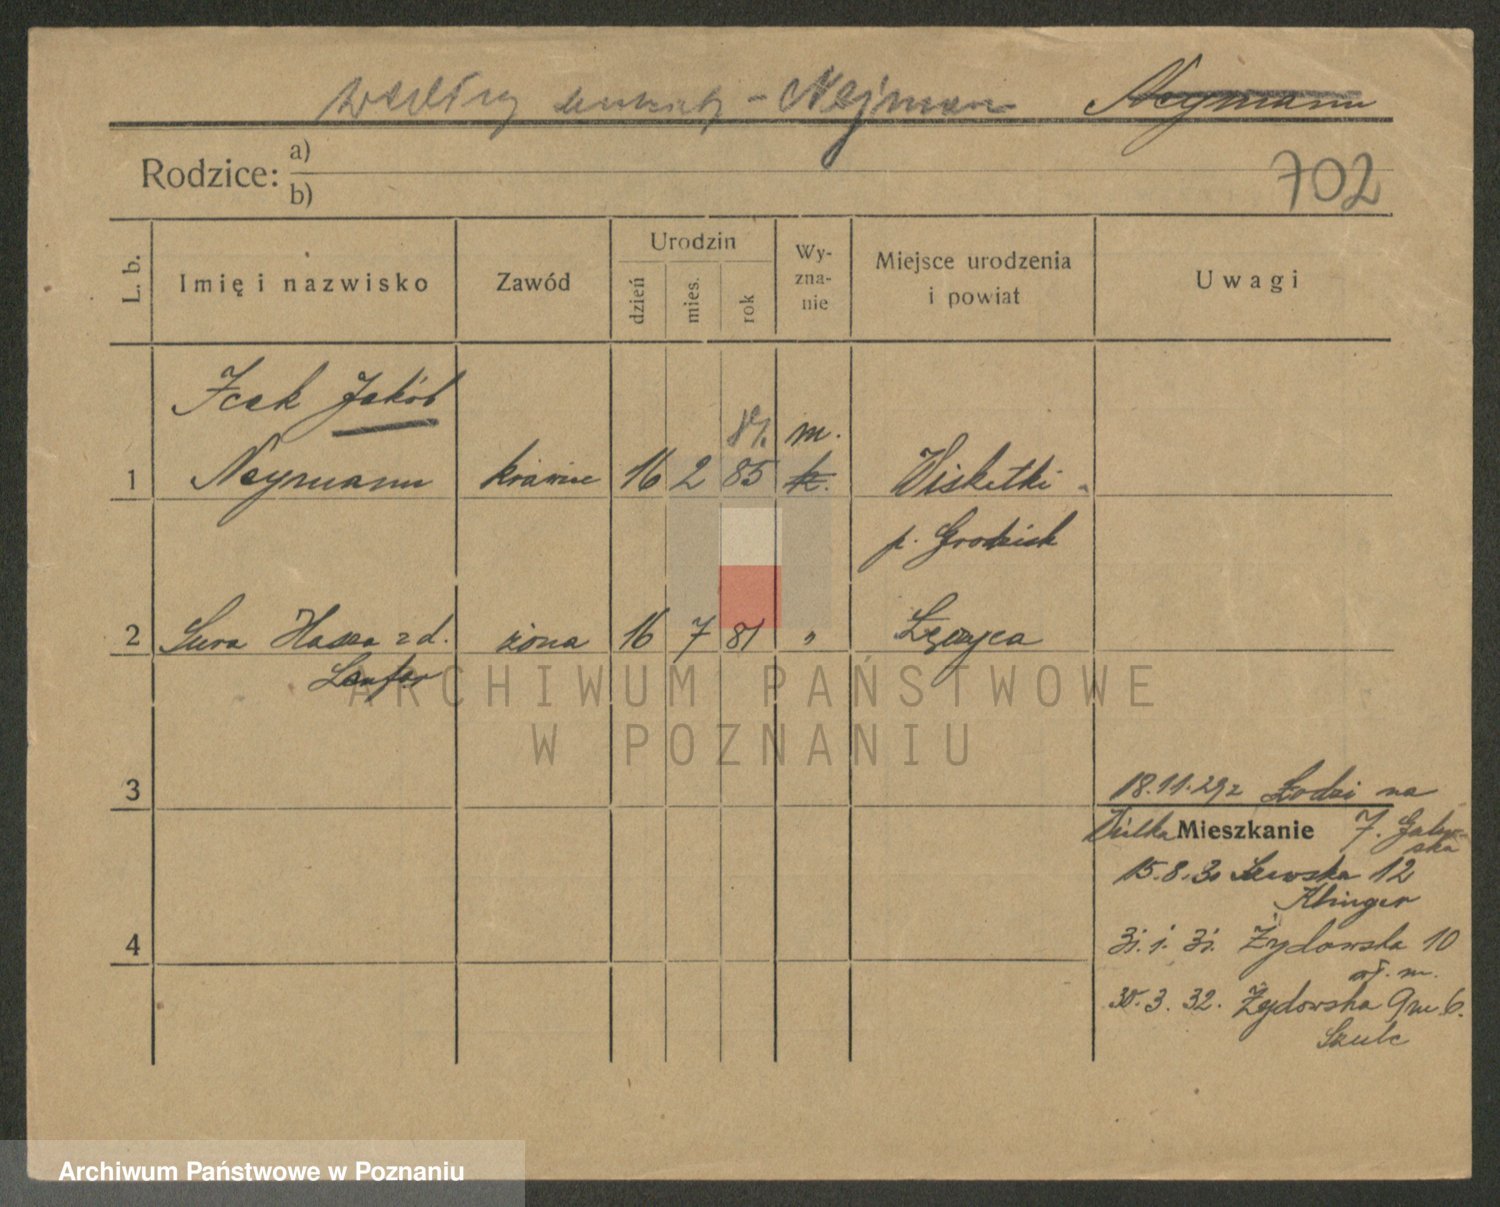 Nejman Neymann
Rodzice:
a)
b)
702
L. b.
Imię i nazwisko
Zawód
Urodzin
dzień
mies.
rok
Wy-
zna-
nie
Miejsce urodzenia
i powiat
Uwagi
Icek Jakób
81. m.
1 Neymann krawiec 16 2 85 k. Wiskitki
p. Grodzisk
2 Sura Hassa z d. żona 16 7 81 " Łęczyca
Lenfer
3
18.11.29 z Łodzi na
Wielka Mieszkanie 7.
15.8.30 12
Klinger
31. 1. 31. Żydowska 10
wł. m.
30. 3. 32. Żydowska 9 m 6.
Szulc
4
ARCHIWUM PAŃSTWOWE
W POZNANIU
Archiwum Państwowe w Poznaniu